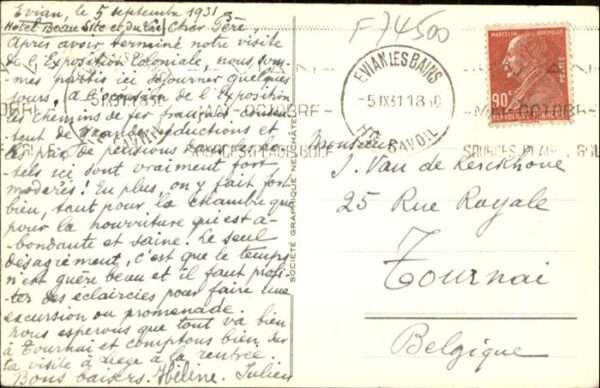 Evian, le 5 septembre 1931
Hotel Beau Site et du Lac Cher Père,
Après avoir terminé notre visite
de l'Exposition Coloniale, nous som-
mes partis ici séjourner quelques
jours, à l'occasion de l'Exposition
les chemins de fer français consen-
tent de grandes réductions et
le prix de pensions dans les hô-
tels ici sont vraiment fort
modérés! En plus, on y fait fort
bien, tant pour la chambre que
pour la nourriture qui est a-
bondante et saine. Le seul
désagrément, c'est que le temps
n'est guère beau et il faut profi-
ter des eclaircies pour faire une
excursion ou promenade.
Nous esperons que tout va bien
à Tournai et comptons bien
ta visite à Liège à la rentrée.
Bons baisers. Hélène. Julien
SOCIÉTÉ GRAPHIQUE NEUCHÂTEL
F/4500
EVIAN LES BAINS
-5 IX 31 18
HTE SAVOIE
MARCELIN BERTHELOT
90c
POSTE
REPUBLIQUE FRANÇAISE
MAI-OCTOBRE
SOURCES
GOLF
Monsieur
J. Van de Kerckhove
25 Rue Royale
Tournai
Belgique